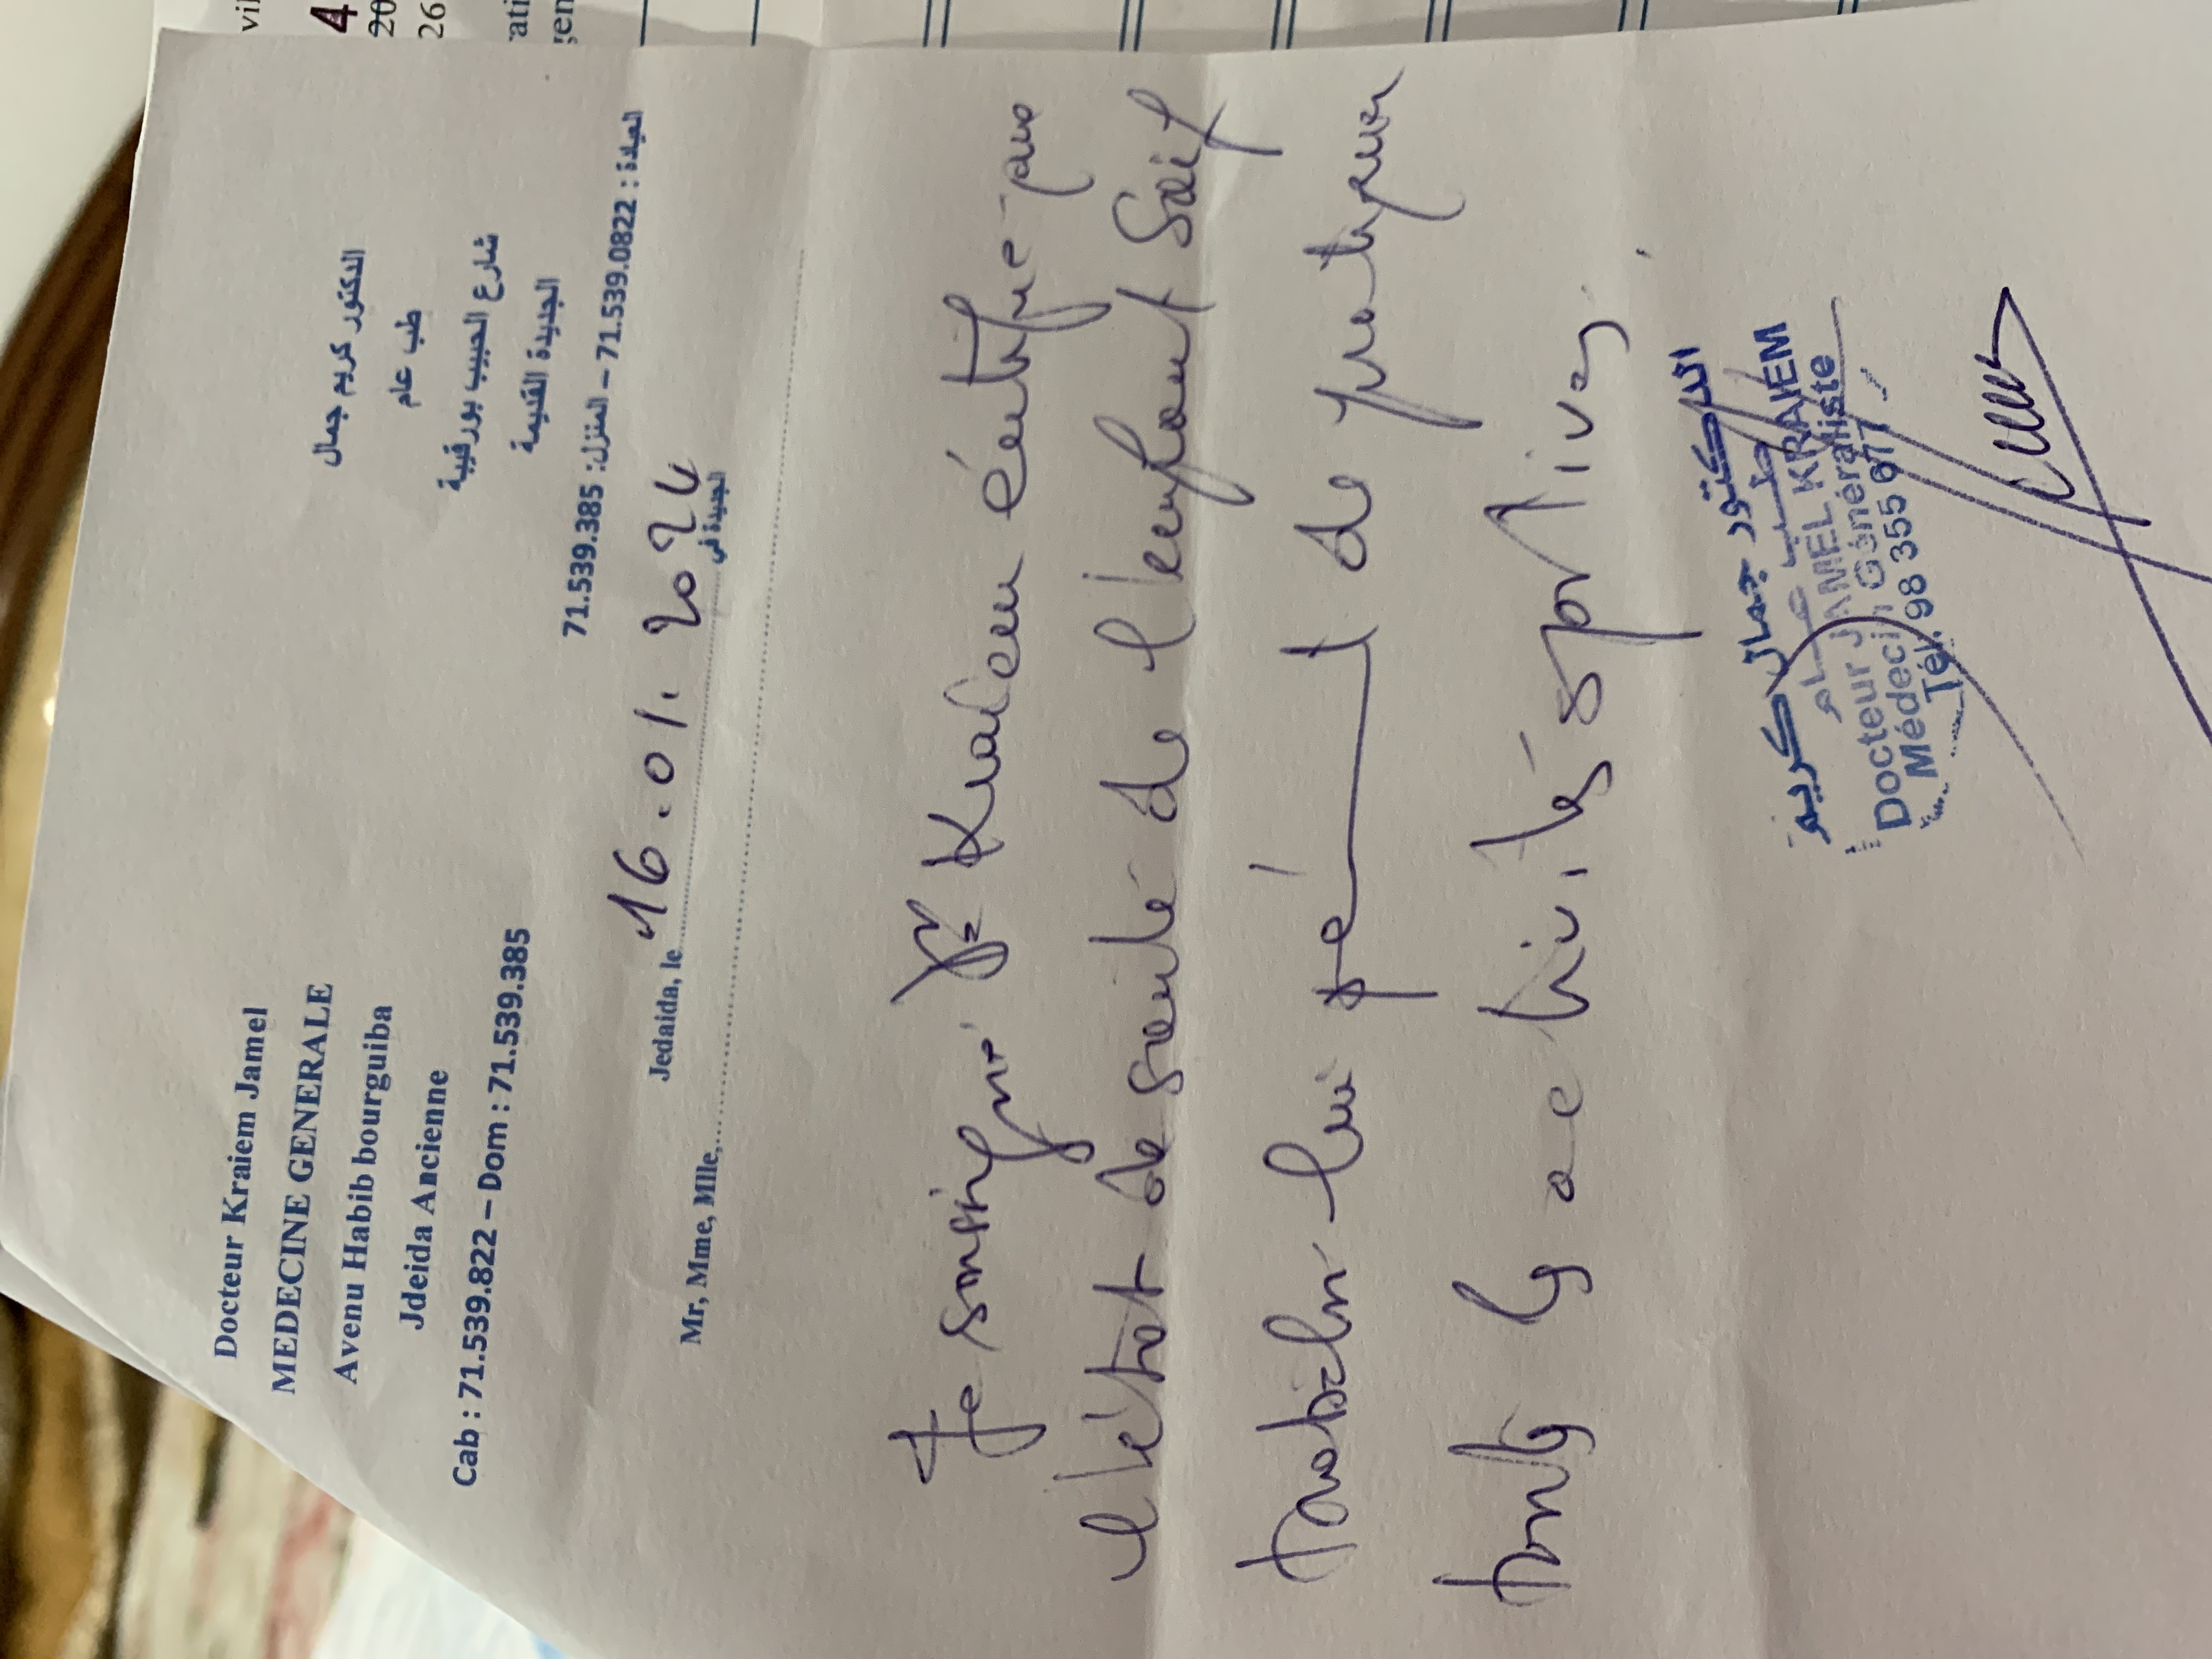 Docteur Kraiem Jamel
MEDECINE GENERALE
Avenu Habib bourguiba
Jdeida Ancienne
Cab : 71.539.822 – Dom : 71.539.385
الدكتور كريم جمال
طب عام
شارع الحبيب بورقيبة
الجديدة القديمة
العيادة : 71.539.0822 – المنزل: 71.539.385
Jedaida, le 16.01.2024 الجديدة في
Mr, Mme, Mlle,
Je soussigné Dr Kraiem certifie que
l'état de santé de l'enfant Saif
lui permet de pratiquer
toutes les activités sportives.
الدكتور جمال كريم
طب عام
Docteur JAMEL KRAIEM
Médecin Généraliste
Tél. 98 355 677